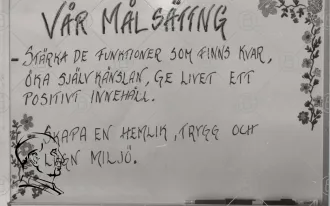 VÅR MÅLSÄTTNG
- STÄRKA DE FUNKTIONER SOM FINNS KVAR,
ÖKA SJÄLVKÄNSLAN, GE LIVET ETT
POSITIVT INNEHÅLL.
SKAPA EN HEMLIK, TRYGG OCH
MILJÖ.